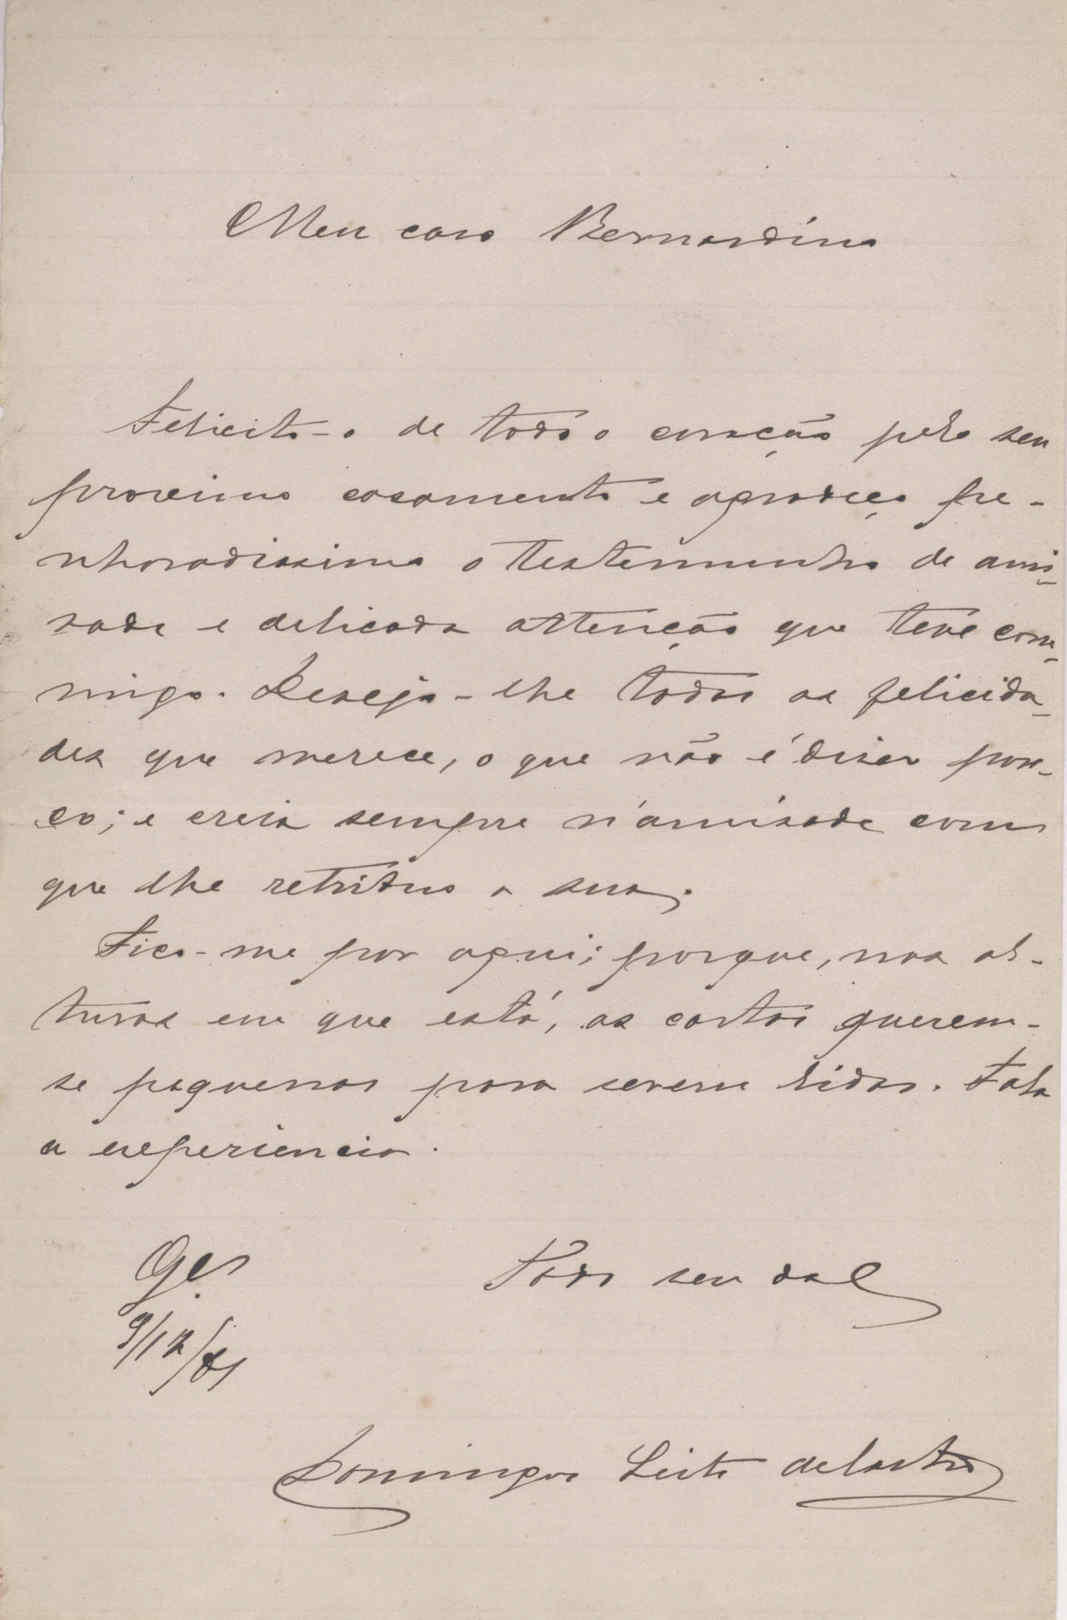 Meu caro Bernardino
Felicito-o de todo o coração pelo seu
proximo casamento e agradeço pe-
nhoradissimo o testemunho de ami-
sade e delicada attenção que teve com-
migo. Desejo-lhe todas as felicida-
des que merece, o que não é diser pou-
co; e creia sempre n'amisade com
que lhe retribuo a sua.
Fico-me por aqui; porque, nas al-
turas em que está, as cartas querem-
se pequenas para serem lidas. Fala
a experiencia.
Todo seu
9/12/81
Domingos Leite de Castro